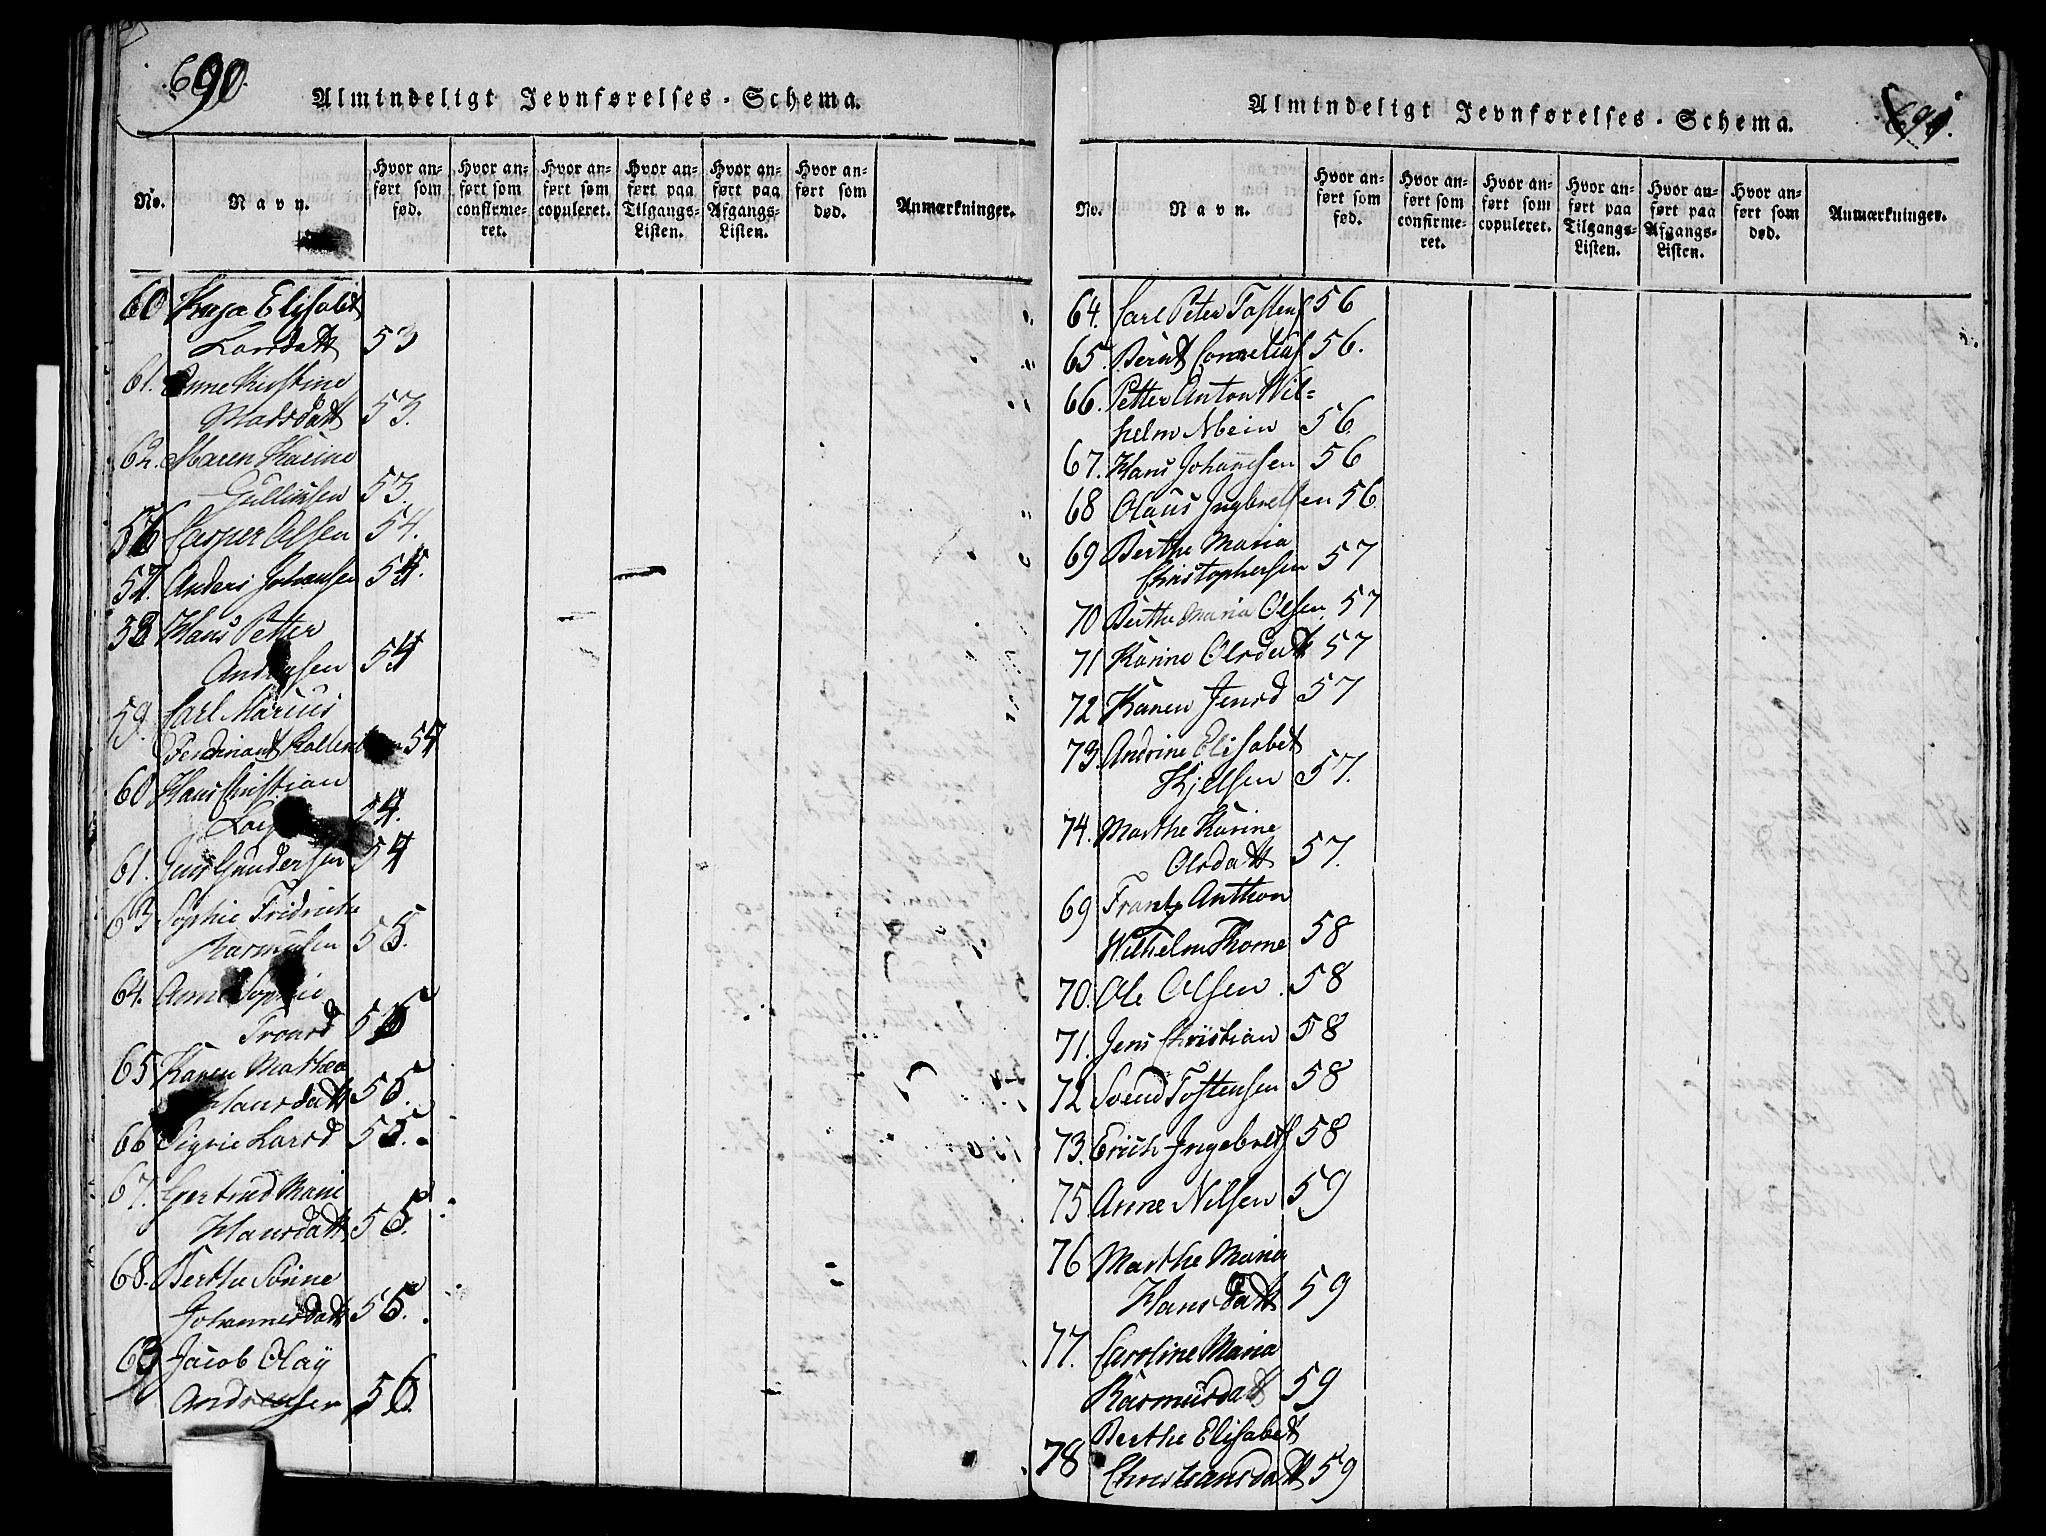 690.
Almindeligt Jevnførelses-Schema.
No.
Navn.
Hvor anført som fød.
Hvor anført som confirmeret.
Hvor anført som copuleret.
Hvor anført paa Tilgangs-Listen.
Hvor anført paa Afgangs-Listen.
Hvor anført som død.
Anmærkninger.
60 Elisabet
Larsdatt 53
61. Anne Kirstine
Madsdatt 53.
62. Maren Karine
Gullimsen 53.
56 Casper Olsen 54.
57. Anders Johansen 54.
58 Hans Petter
Andreasen 54
59. Carl Marius
Ferdinant 54
60 Hans Christian
54.
61. Jens Gundersen 54
63 Sophie Fridricke
Rasmusen 55.
64. Anne Sophie
55
65 Karen Mathea
Hansdatt 55.
66 Sigrie Larsd 55.
67. Gertrud Marie
Hansdatt 55.
68. Berthe
Johannesdatt 55.
63 Jacob Olay
Andreasen 56.
691.
Almindeligt Jevnførelses-Schema.
No.
Navn.
Hvor anført som fød.
Hvor anført som confirmeret.
Hvor anført som copuleret.
Hvor anført paa Tilgangs-Listen.
Hvor anført paa Afgangs-Listen.
Hvor anført som død.
Anmærkninger.
64. Carl Peter Tostens 56
65. Bernt Cornelius 56.
66. Petter Anton Wil=
helm 56
67. Hans Johannesen 56
68 Olaus Ingbretsen 56
69 Berthe Maria
Christophersen 57
70 Berthe Maria Olsen 57
71 Karine Olsdatt 57
72 Karen Jensd 57
73. Andrine Elisabet
Kjelsen 57.
74. Marthe Karine
Olsdatt 57.
69 Frantz Anthon
Wilhelm Thorne 58
70. Ole Olsen 58
71. Jens Christian 58
72 Svend Tostensen 58
73. Erich Ingebrets 58
75. Anne Nilsen 59
76 Marthe Maria
Hansdatt 59
77. Caroline Maria
Rasmusdatt 59
78 Berthe Elisabet
Christiansdatt 59